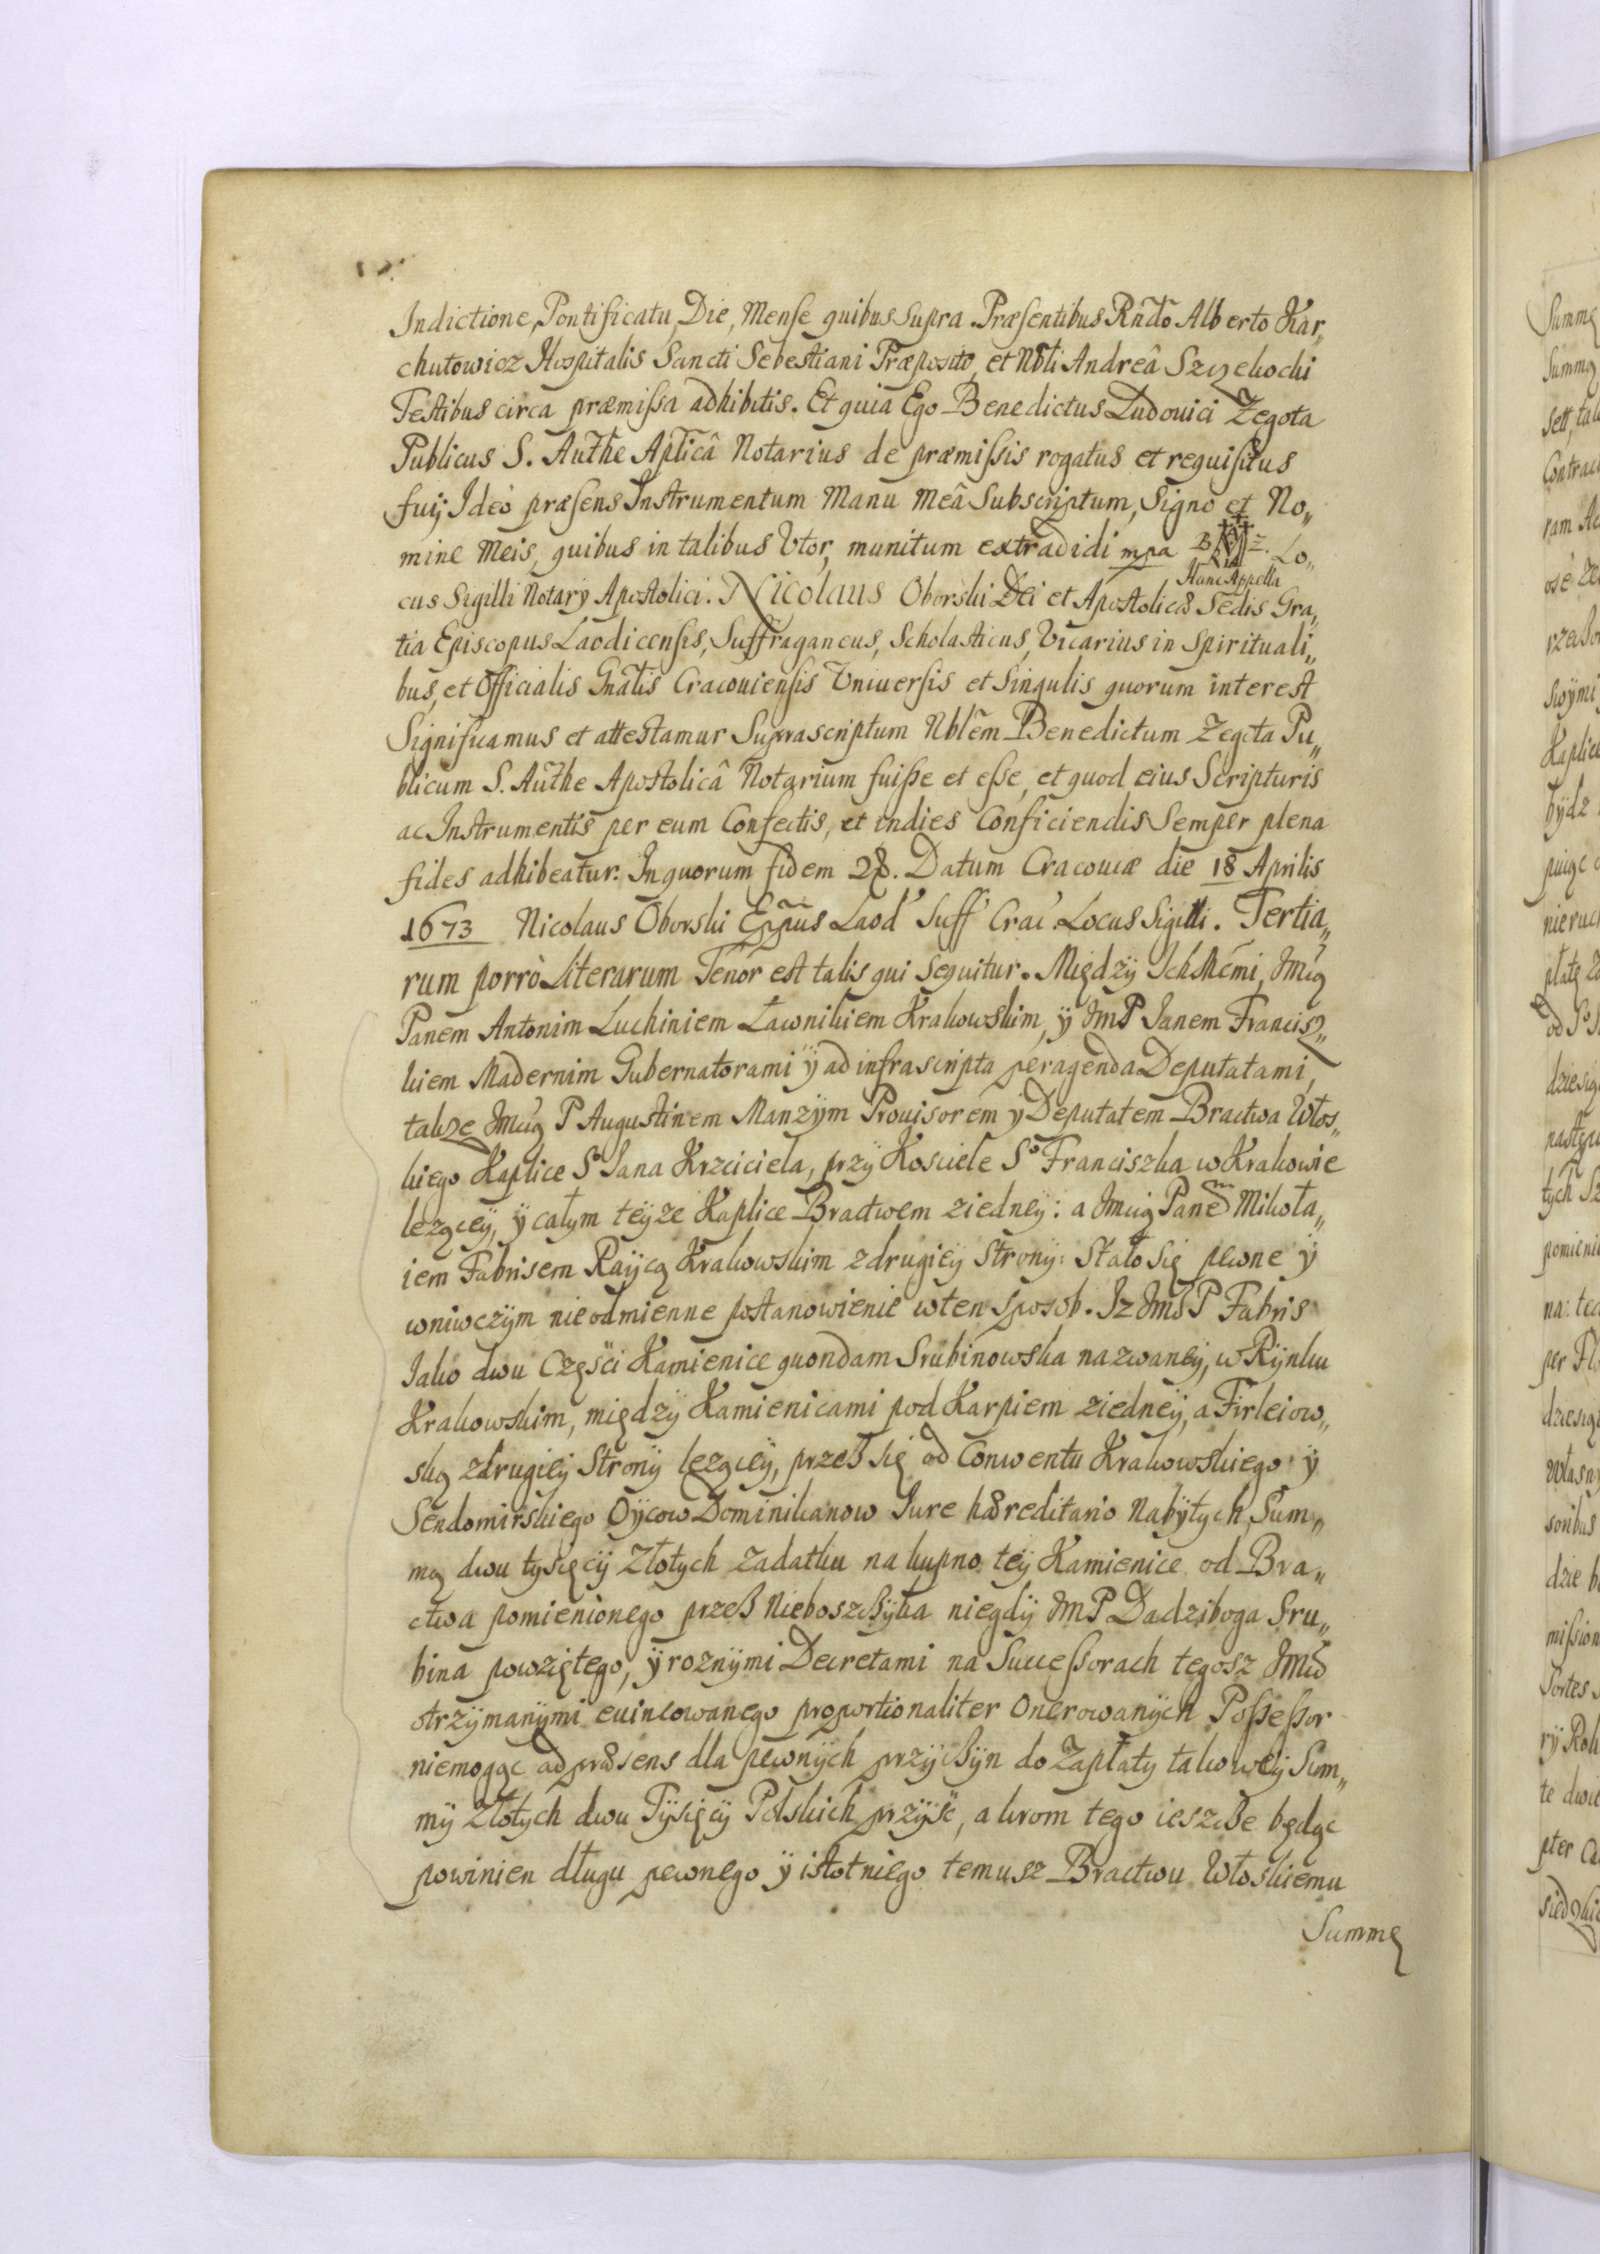 Indictione, Pontificatu, Die, Mense quibus supra. Præsentibus Rñdo Alberto Kar„
chutowicz Hospitalis Sancti Sebestiani Præposito, et Nbli Andreâ
Testibus circa præmissa adhibitis. Et quia Ego Benedictus Ludovici Zegota
Publicus S. Authe Aplicâ Notarius de præmissis rogatus et requisitus
fuij Ideò præsens Instrumentum Manu Meâ Subscriptum, Signo et No„
mine Meis, quibus in talibus Vtor, munitum extradidi mpa B Z. Lo„
Hanc Appella
cus Sigilli Notarÿ Apostolici. Nicolaus Oborski Dei et Apostolicæ Sedis Gra„
tia Episcopus Laodicensis, Suffraganeus, Scholasticus, Vicarius in Spirituali„
bus, et Officialis Gnãlis Cracouiensis Vniuersis et Singulis quorum interest
Significamus et attestamur Suprascriptum Nblem Benedictum Zegota Pu„
blicum S. Authe Apostolicâ Notarium fuisse et esse, et quod eius Scripturis
ac Instrumentis per eum Confectis, et indies Conficiendis Semper plena
fides adhibeatur. In quorum fidem &. Datum Cracouiæ die 18 Aprilis
1673 Nicolaus Oborski Eppus Laod' Suff' Crac' Locus Sigilli. Tertia„
rum porrò Literarum Tenor est talis qui Sequitur. Między Ich Mćmi, Jmćią
Panem Antonim Luchiniem Ławnikiem Krakowskim, ÿ JmP Janem Francisz„
kiem Madernim Gubernatorami ÿ ad infrascripta peragenda Deputatami,
takze Jmćią P Augustinem Manzÿm Prouisorem ÿ Deputatem Bractwa Włos„
kiego Kaplice So Jana Krzciciela, przÿ Kosciele So Franciszka w Krakowie
lezącÿ, ÿ całym teÿze Kaplice Bractwem ziedneÿ: a Jmcią Panem Mikoła„
iem Fabrisem Raÿcą Krakowskim zdrugieÿ Stronÿ: Stało się pewne ÿ
wniwczÿm nieodmienne postanowienie wten sposob. Iz JmśP Fabris
Jako dwu Części Kamienice quondam Srubinowska nazwaneÿ, w Rÿnku
Krakowskim, międzÿ Kamienicami pod Karpiem ziedneÿ, a Firleiow„
ską zdrugieÿ Stronÿ lezącÿ, przeß się od Conwentu Krakowskiego ÿ
Sendomirskiego Oÿcow Dominikanow Jure hæreditario Nabÿtych, Sum„
mą dwu tysięcÿ Złotych zadatku na kupno teÿ Kamienice od Bra„
ctwa pomienionego przeß Nieboszcßÿka niegdÿ JmP Dadziboga Sru„
bina powziętego, ÿ roznÿmi Decretami na Successorach tegosz Jmći
otrzÿmanÿmi euincowanego proportionaliter Onerowanÿch Possessor
niemogąc ad præsens dla pewnÿch przÿcßÿn do Zapłaty takoweÿ Sum„
mÿ Złotych dwu Tÿsięcÿ Polskich przÿść, a krom tego ieszcße będąc
powinien długu pewnego ÿ istotniego temusz Bractwu Włoskiemu
Summę